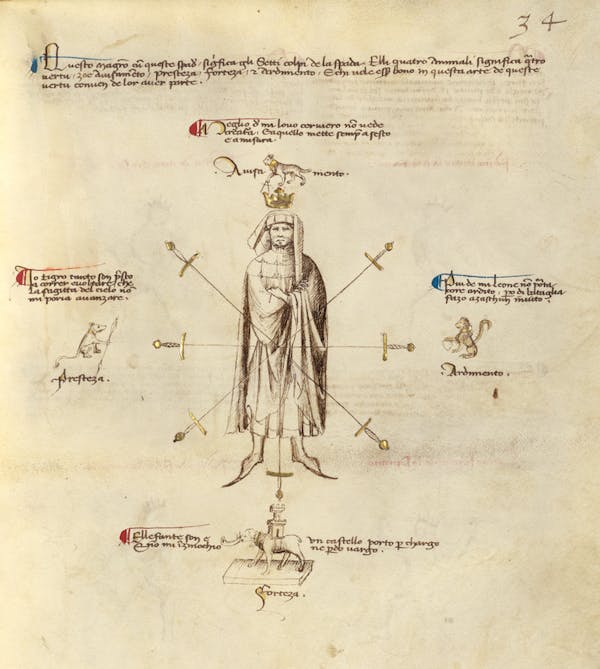 34
Questo magro cum queste spad significa gli Setti colpi de la spada. Elli quatro animali significa qtro
vertu, zoe avisamento, presteza, forteza, 2 ardimento. E chi vole ess bono in questa arte de queste
vertu conven de lor aver parte.
Meglio d mi lovo cerviero no vede
creatura. E aquello mette semp a sesto
e a misura
Avisa mento.
Io tigro tanto son psto
a correr e voltare, che
la sagitta del cielo no
mi poria avanzare.
Presteza.
Piu de mi leone no porta
core ardito, po di bataglia
fazo a zaschun invito.
Ardimento.
Ellefante son e un castello porto p chargo
E no mi inzenochio ne pdo vargo.
Forteza.